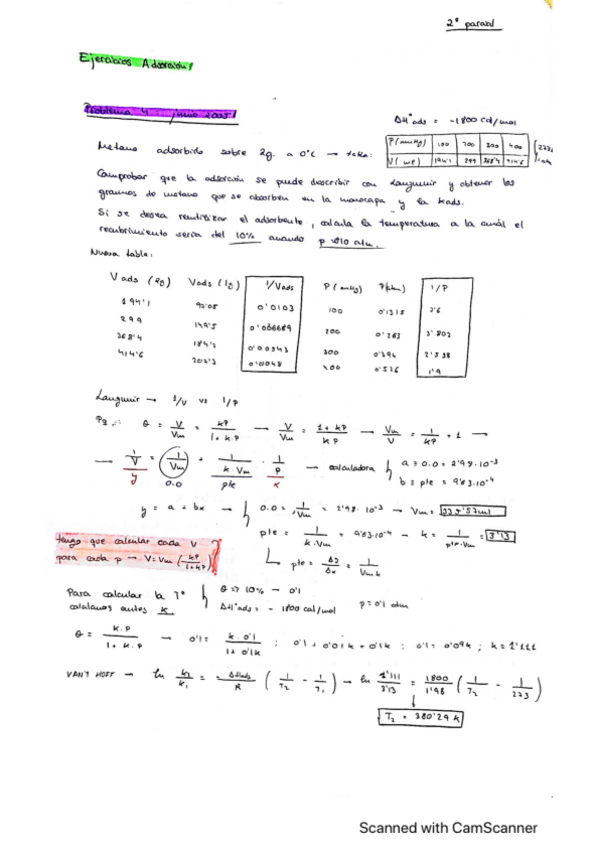 2º parcial
Ejercicios Adsorción!
Problema 4 junio 2005!
ΔHºads = -1800 cal/mol
Metano adsorbido sobre 2g. a 0ºC → tabla:
P (mmHg) 100 200 300 400
V (mL) 194'1 299 368'4 414'6
Comprobar que la adsorción se puede describir con Langmuir y obtener los
gramos de metano que se absorben en la monocapa y la Kads.
Si se desea reutilizar el adsorbente, calcula la temperatura a la cuál el
recubrimiento sería del 10% cuando atm.
Nueva tabla:
V ads (2g) Vads (1g) 1/Vads P (mmHg) P(atm) 1/P
194'1 97'05 0'0103 100 0'1315 7'6
299 149'5 0'006689 200 0'263 3'802
368'4 184'2 0'00543 300 0'394 2'538
414'6 207'3 0'0048 400 0'526 1'9
Langmuir → 1/V vs 1/P
θ = V/Vm = kP/1+k.P → V/Vm = → Vm/V = 1/kP + 1 →
→ 1/V = 1/Vm + 1/k.Vm · 1/P → calculadora a = 0.0 = 2'98.10⁻³
y 0.0 pte x b = pte = 9'83.10⁻⁴
y = a + bx → 0.0 = 1/Vm = 2'98.10⁻³ → Vm =
pte = 1/k.Vm = 9'83.10⁻⁴ → k = 1/pte.Vm = 3'13
pte = Δy/Δx = 1/Vm.k
tengo que calcular cada V
para cada p → V = Vm (kP/1+kP) ?
Para calcular la Tª θ = 10% → 0'1
calculamos antes K ΔHºads = - 1800 cal/mol p = 0'1 atm
θ = k.P/1+k.P → 0'1 = k.0'1/1+0'1k ; 0'1 + 0'01k = 0'1k ; 0'1 = 0'09k ; k = 1'111
VAN'T HOFF → ln k2/k1 = -ΔHads/R (1/T2 - 1/T1) → ln 1'111/3'13 = 1800/1'98 (1/T2 - 1/273)
T2 = 380'29 K
Scanned with CamScanner